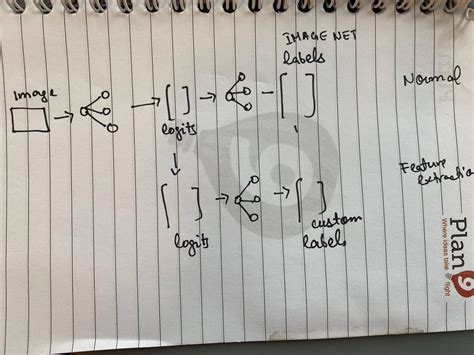 IMAGE NET
labels
Image
Normal
logits
Feature
Extraction
logits
custom
labels
Plan9
Where ideas take flight